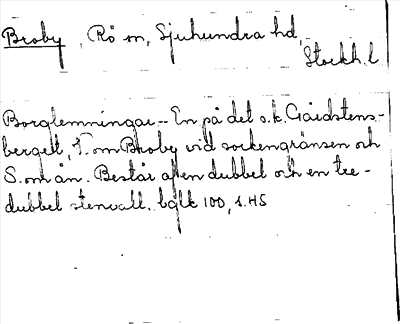 Broby, Rö sn, Sjuhundra hd,
Stockh. l
Borglämningar -- En på det s.k. Gårdstens-
berget, V. om Broby vid sockengränsen och
S. om ån. Består af en dubbel och en tre-
dubbel stenvall. bglt 100, s. 45